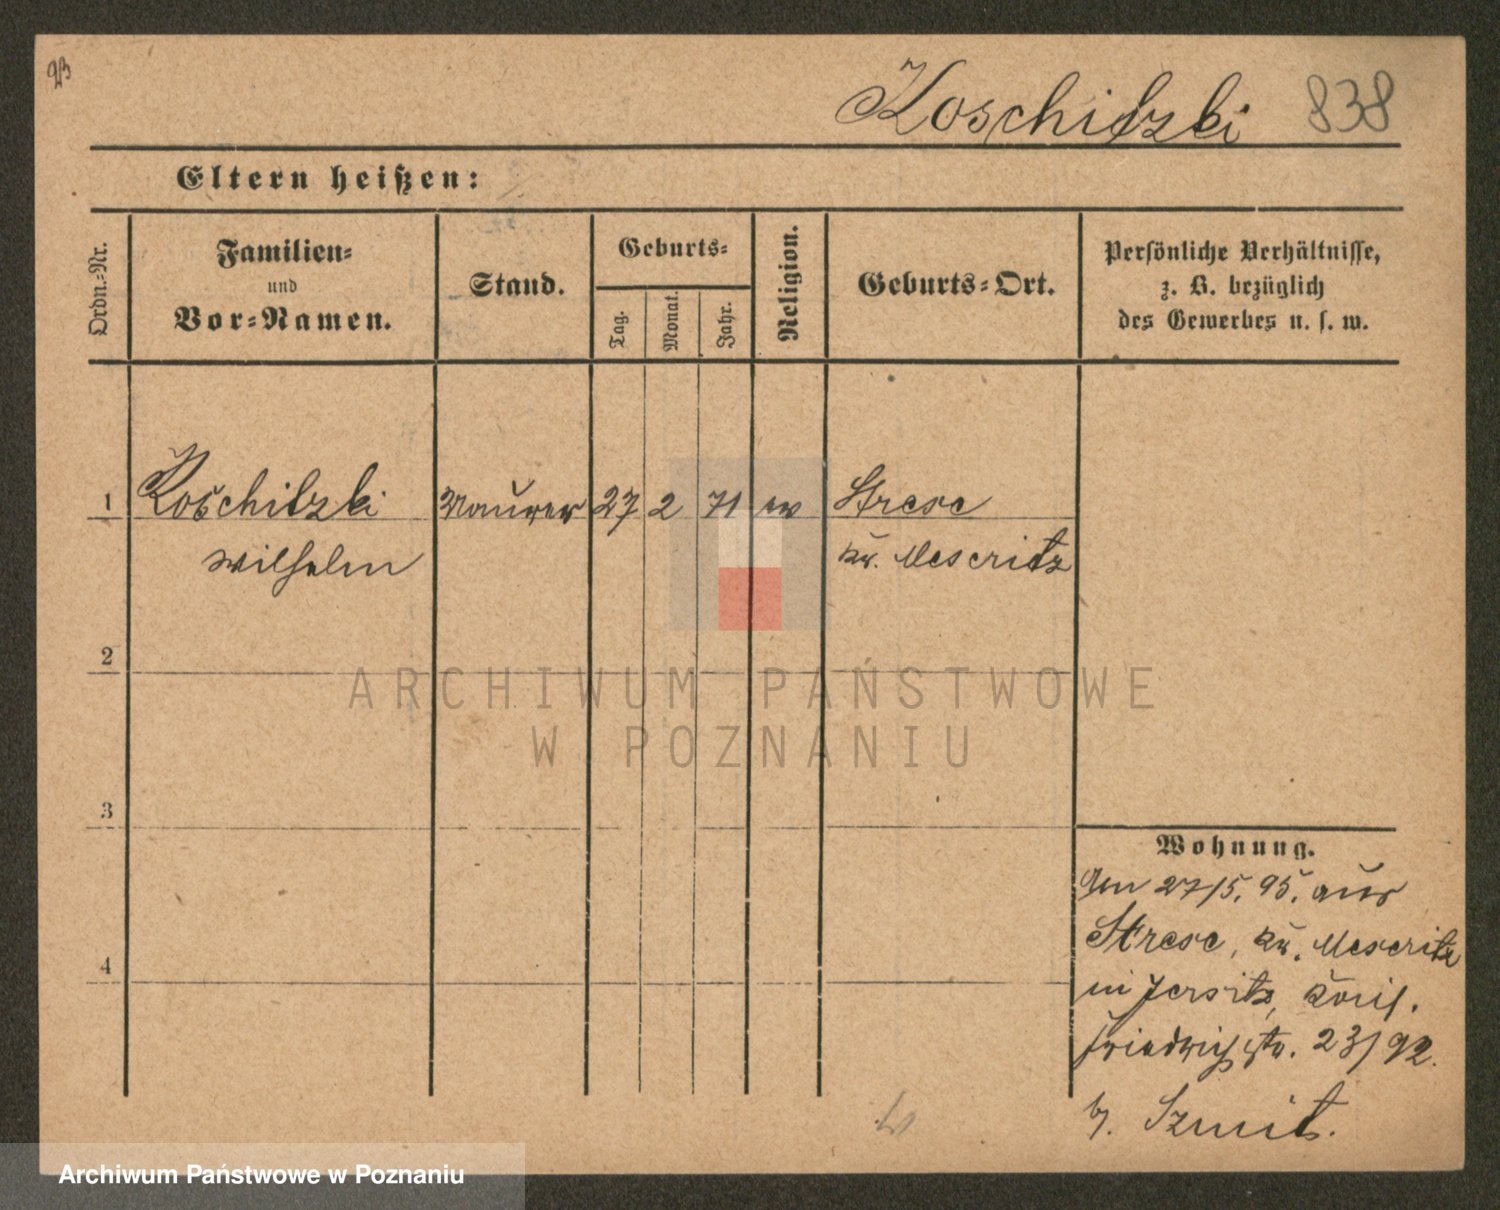 93
Koschitzki 838
Eltern heißen:
Ordn.-Nr.
Familien-
und
Vor-Namen.
Stand.
Geburts-
Tag.
Monat.
Jahr.
Religion.
Geburts-Ort.
Persönliche Verhältnisse,
z. B. bezüglich
des Gewerbes u. s. w.
1 Koschitzki Maurer 27 2 71 ev Strese
Wilhelm Kr. Meseritz
2
3
4
Wohnung.
Am 27/5. 95. aus
Strese, Kr. Meseritz
in Jersitz,
Friedrichstr. 23/92.
b. Szmit.
ARCHIWUM PAŃSTWOWE
W POZNANIU
Archiwum Państwowe w Poznaniu